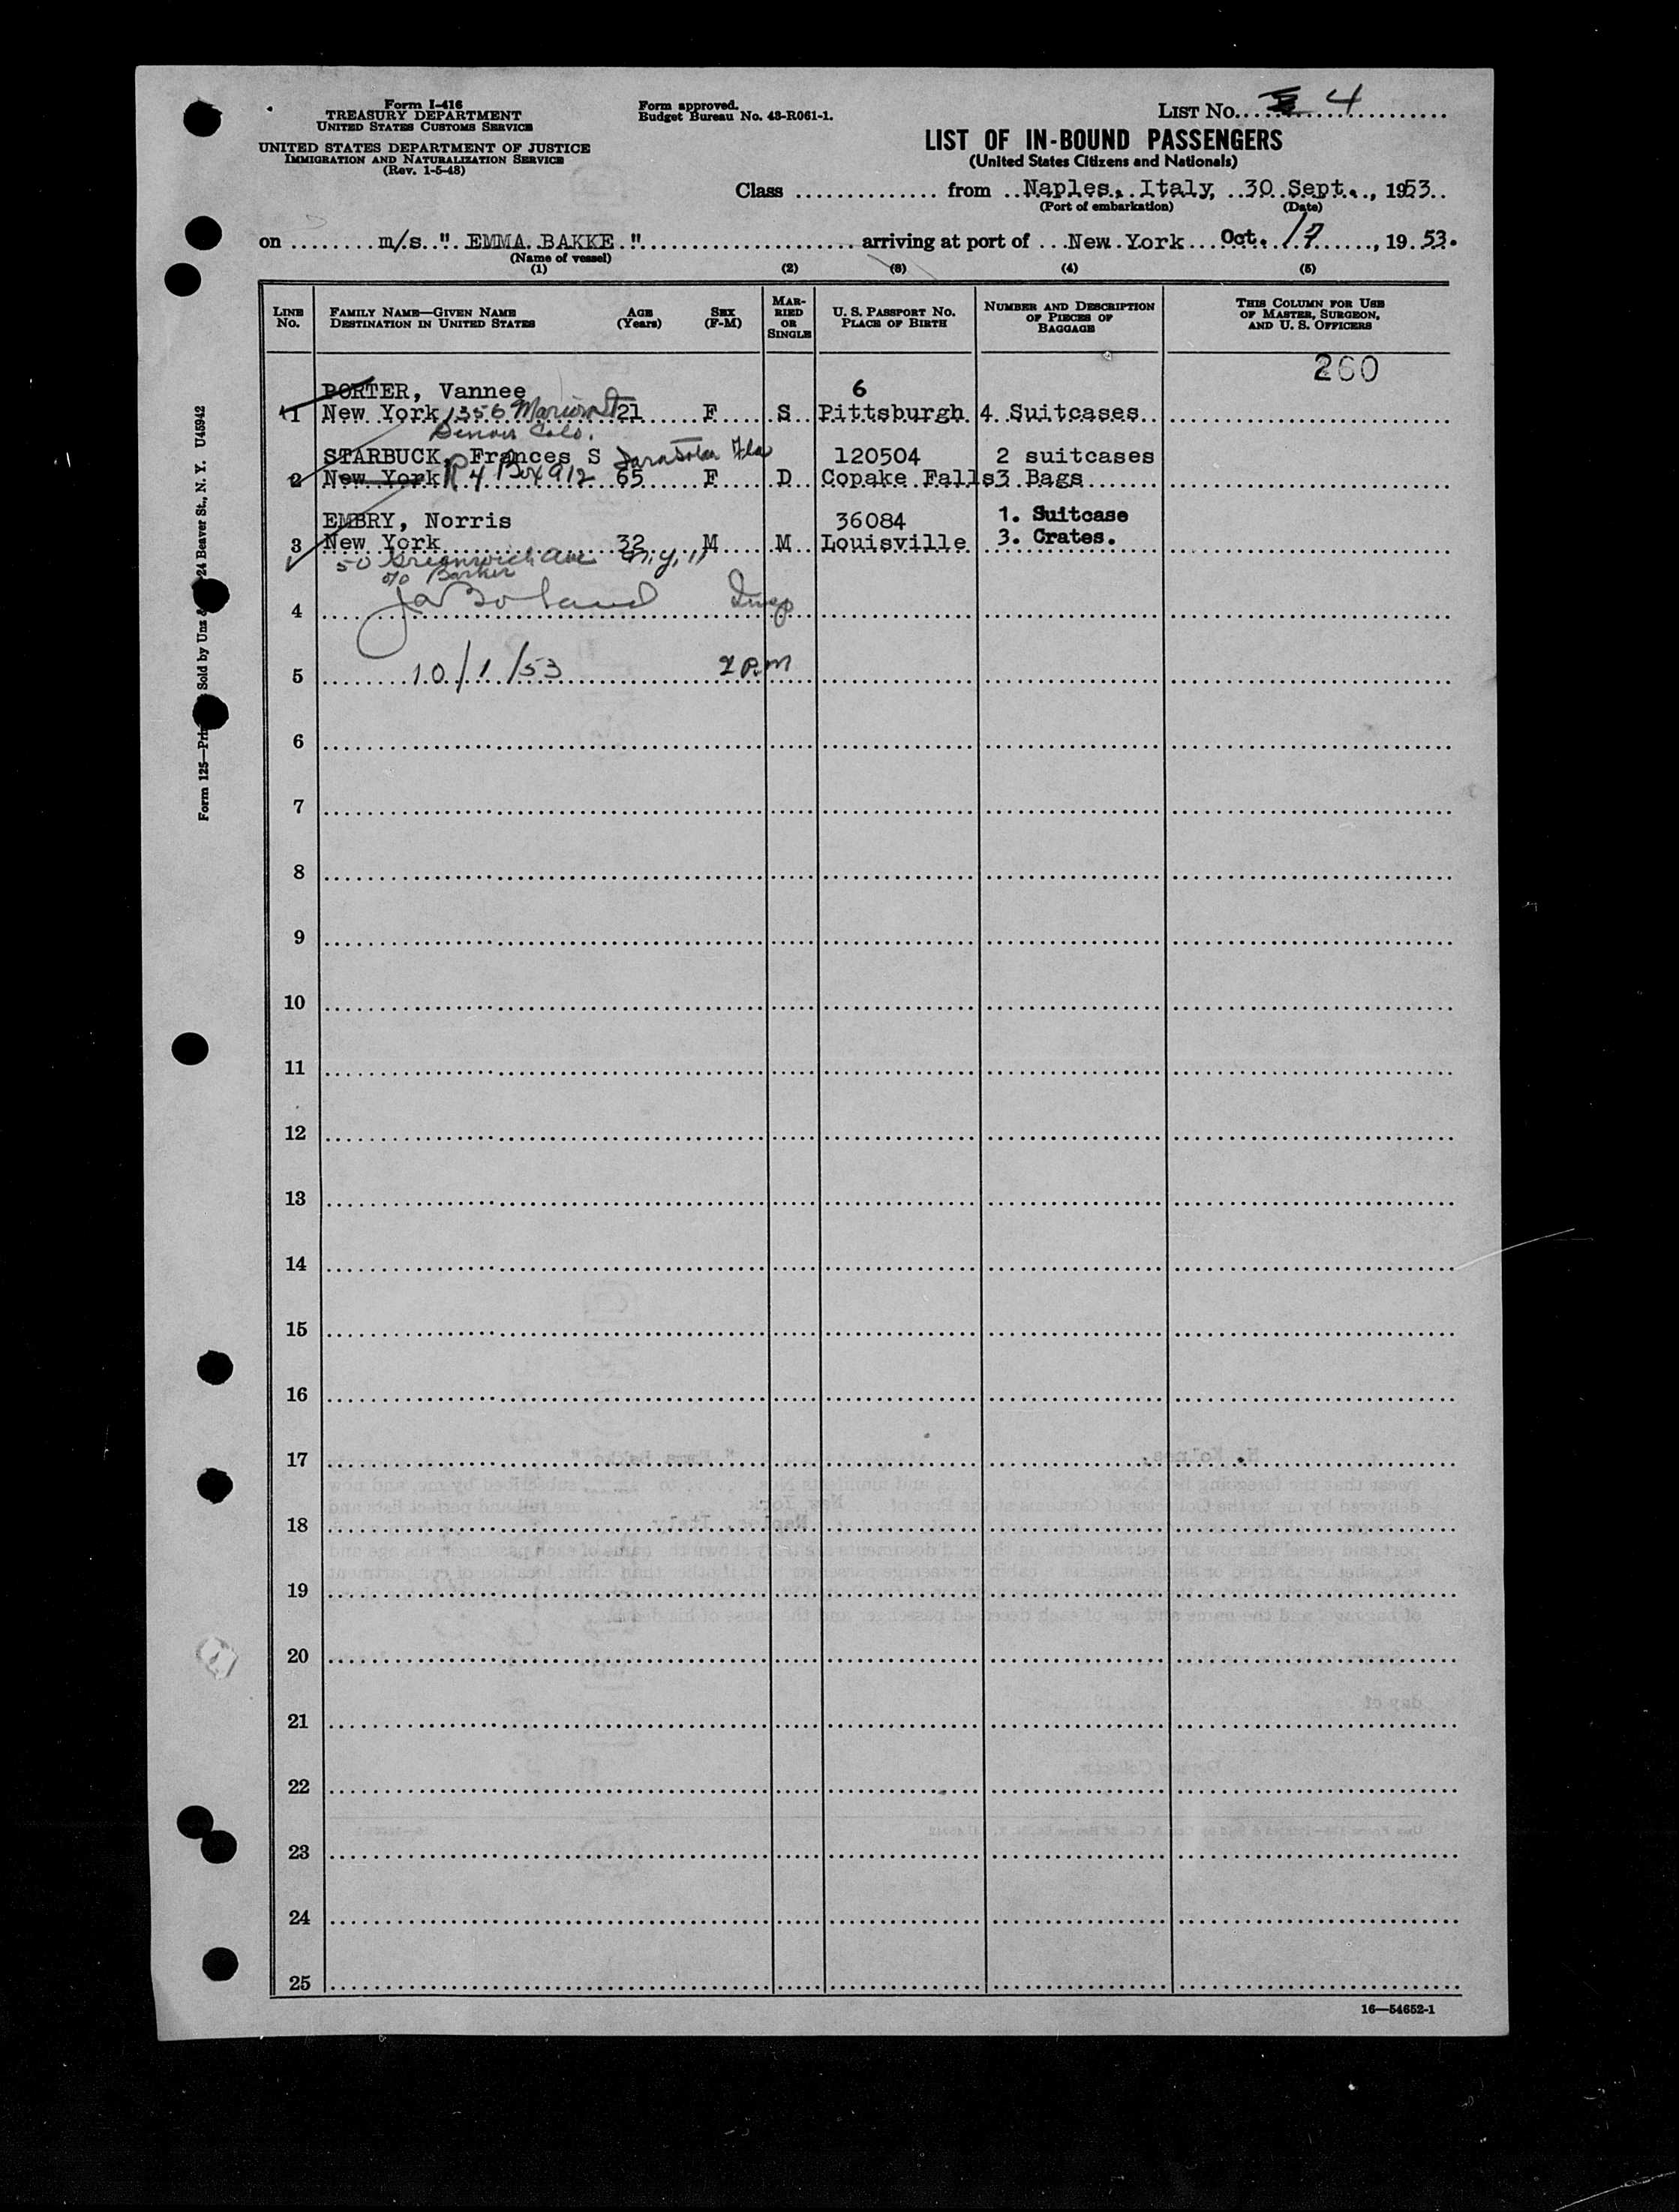 Form I-416
TREASURY DEPARTMENT
UNITED STATES CUSTOMS SERVICE
UNITED STATES DEPARTMENT OF JUSTICE
IMMIGRATION AND NATURALIZATION SERVICE
(Rev. 1-5-48)
Form approved.
Budget Bureau No. 43-R061-1.
LIST No. 4
LIST OF IN-BOUND PASSENGERS
(United States Citizens and Nationals)
Class from Naples, Italy, 30 Sept., 1953
(Port of embarkation) (Date)
on m/s " EMMA BAKKE " arriving at port of New York Oct. 17, 19 53.
(Name of vessel)
(1) (2) (3) (4) (5)
LINE No. FAMILY NAME—GIVEN NAME DESTINATION IN UNITED STATES AGE (Years) SEX (F-M) MARRIED OR SINGLE U. S. PASSPORT No. PLACE OF BIRTH NUMBER AND DESCRIPTION OF PIECES OF BAGGAGE THIS COLUMN FOR USE OF MASTER, SURGEON, AND U. S. OFFICERS
260
PORTER, Vannee 6
1 New York 1356 Marion St 21 F S Pittsburgh 4 Suitcases
Denver Colo.
STARBUCK, Frances S Sarasota Fla 120504 2 suitcases
2 New York R 4 Box 912 65 F D Copake Falls 3 Bags
EMBRY, Norris 36084 1. Suitcase
3 New York 32 M M Louisville 3. Crates.
50 Greenwich Ave N.Y. 11
c/o Barker
4 Insp
5 10/1/53 2 PM
6
7
8
9
10
11
12
13
14
15
16
17
18
19
20
21
22
23
24
25
16—54652-1
Form 125—Pri Sold by Uns & 24 Beaver St., N. Y. U45942